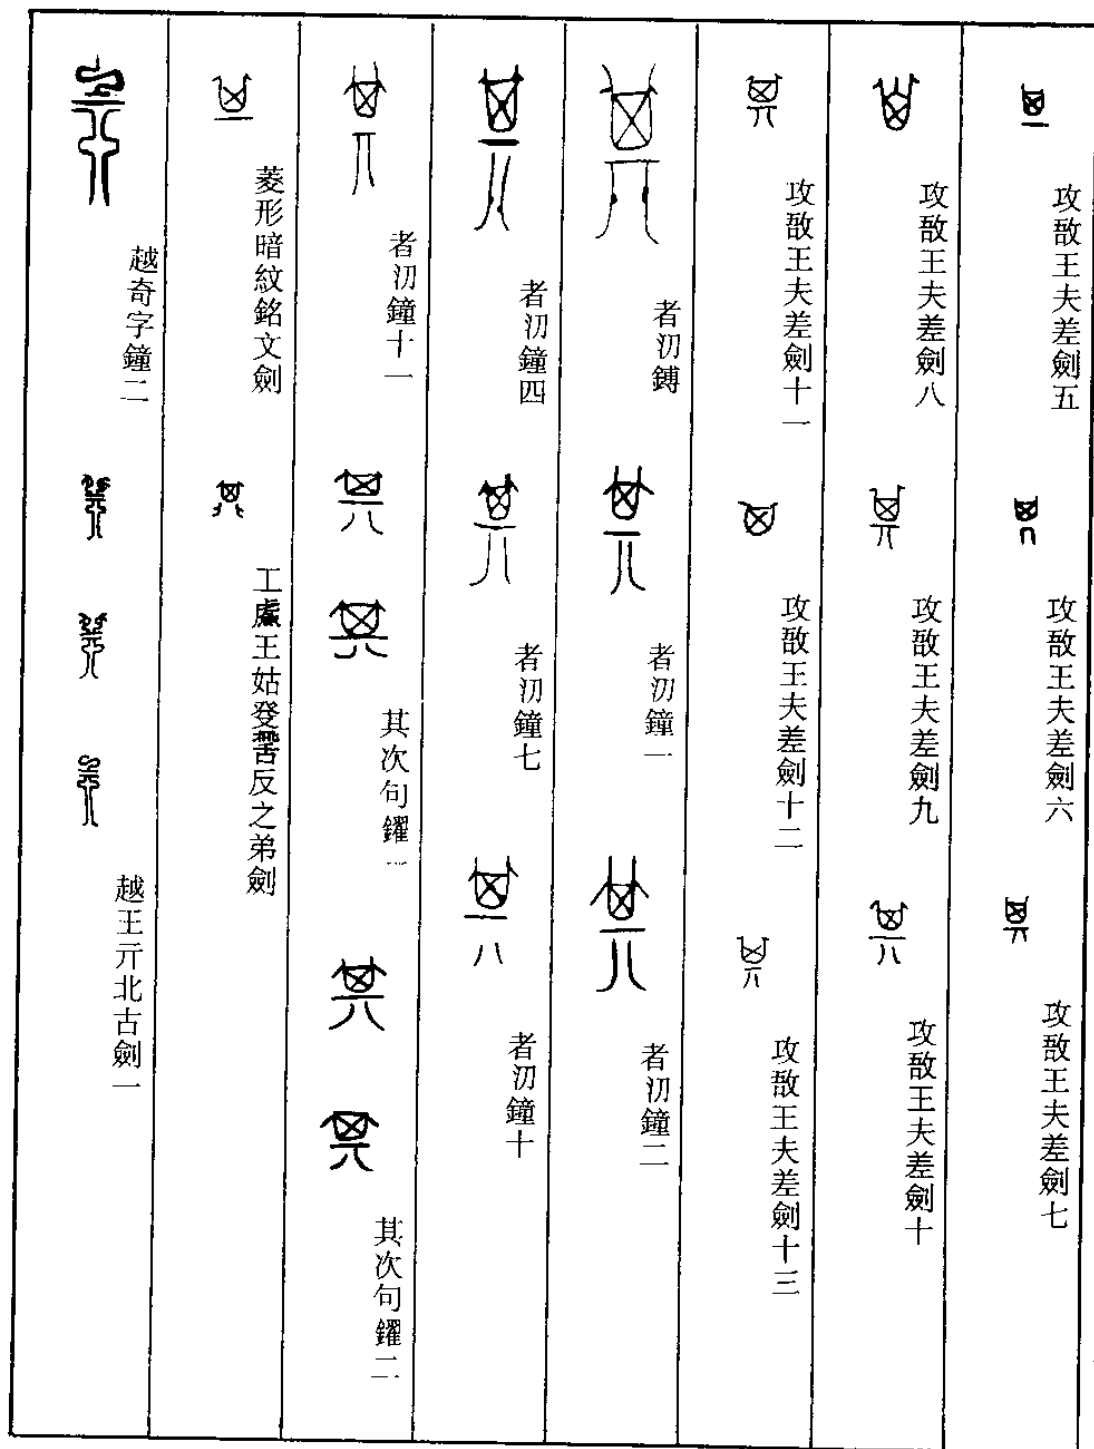 攻敔王夫差劍五
攻敔王夫差劍六
攻敔王夫差劍七
攻敔王夫差劍八
攻敔王夫差劍九
攻敔王夫差劍十
攻敔王夫差劍十一
攻敔王夫差劍十二
攻敔王夫差劍十三
者㓝鎛
者㓝鐘一
者㓝鐘二
者㓝鐘四
者㓝鐘七
者㓝鐘十
者㓝鐘十一
其次句鑃一
其次句鑃二
菱形暗紋銘文劍
工䖒王姑發反之弟劍
越奇字鐘二
越王丌北古劍一